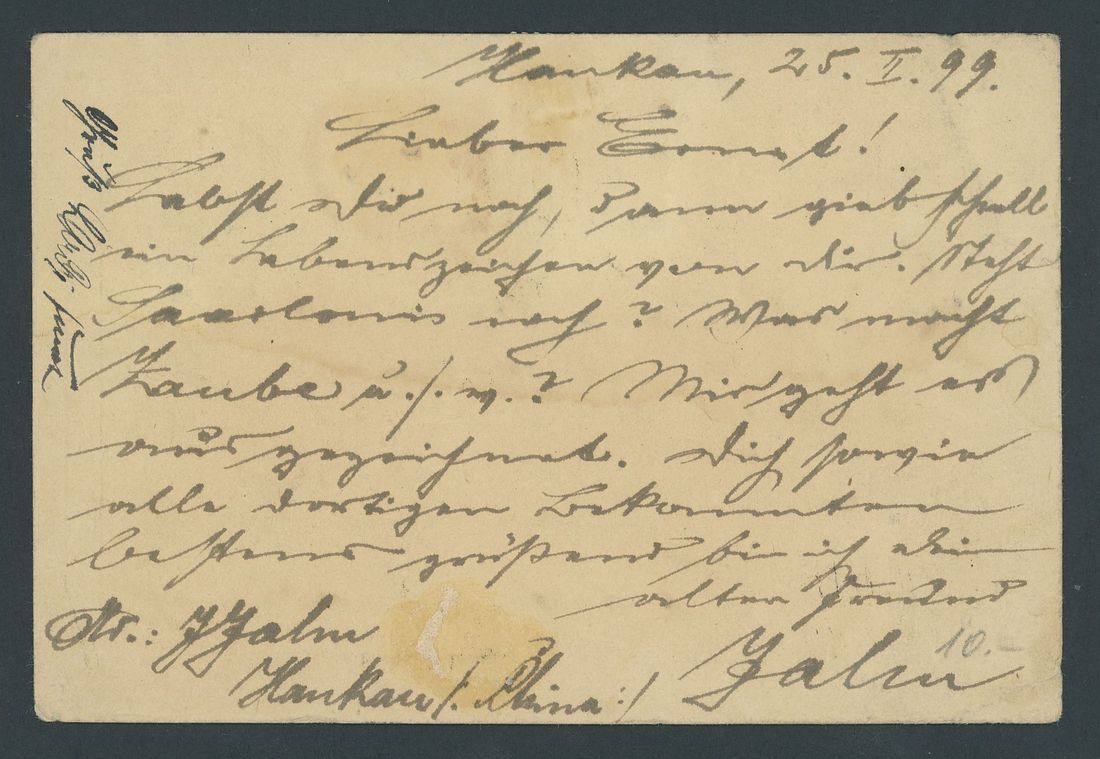 Hankau, 25. I. 99.
Lieber Ernst!
Lebst Du noch, dann gieb schnell
ein Lebenszeichen von dir. Steht
Saarlouis noch? Was macht
Taube u. s. w.? Mir geht es
ausgezeichnet. Dich sowie
alle dortigen Bekannten
bestens grüßend bin ich dein
alter Freund
Jalm
Ad.: J Jalm
Hankau /: China :/
10.-
Gruß